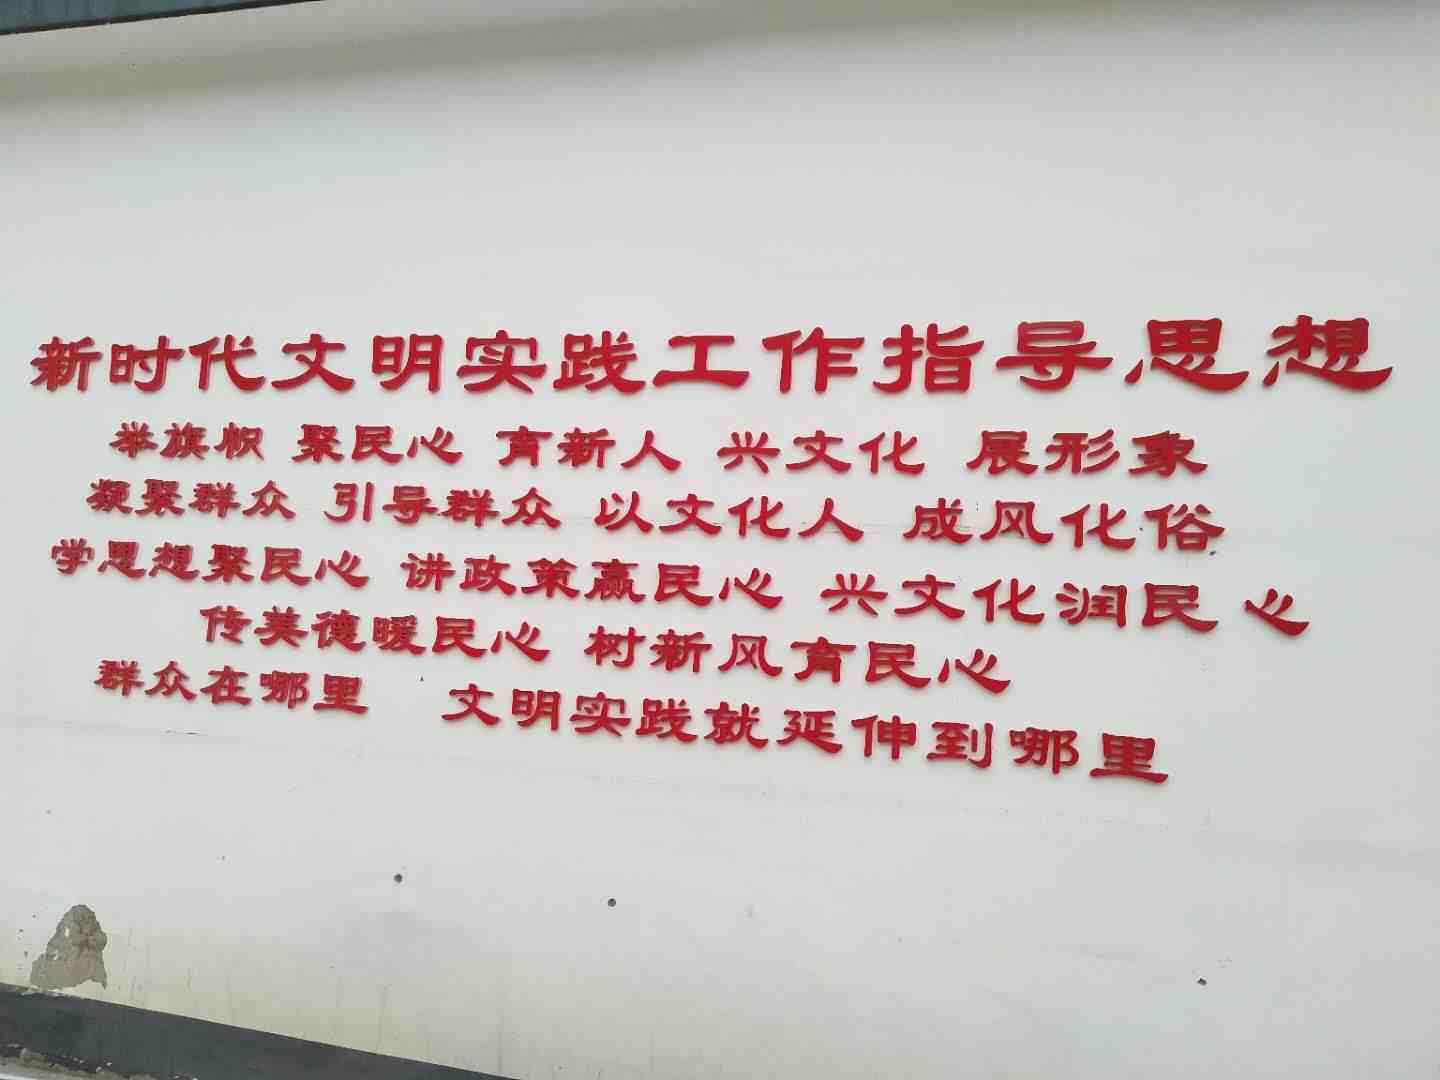 新时代文明实践工作指导思想
举旗帜 聚民心 育新人 兴文化 展形象
凝聚群众 引导群众 以文化人 成风化俗
学思想聚民心 讲政策赢民心 兴文化润民心
传美德暖民心 树新风育民心
群众在哪里 文明实践就延伸到哪里